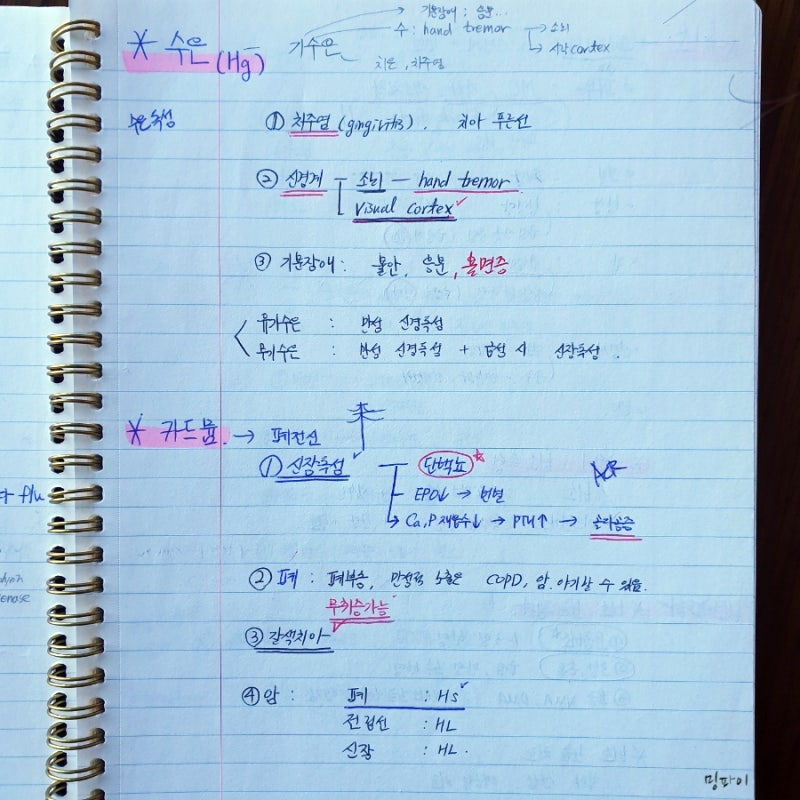 기분장애 : 흥분...
* 수은 (Hg) 기수은 수 : hand tremor → 소뇌
→ 시각 cortex
치은, 치주염
수은 독성 ① 치주염 (gingivitis). 치아 푸른선
② 신경계 - 소뇌 - hand tremor
visual cortex ✓
③ 기분장애 : 불안, 흥분, 불면증
유기수은 : 만성 신경독성
무기수은 : 만성 신경독성 + 급성 시 신장독성.
* 카드뮴. → 폐전신
① 신장독성 ✓ 단백뇨 ☆ ACR
EPO↓ → 빈혈
→ Ca, P 재흡수↓ → PTH↑ → 골다공증
② 폐 : 폐부종, 만성적 노출은 COPD, 암 야기할 수 있음.
무취증가능
③ 갈색치아
④ 암 : 폐 : HS ✓
전립선 : HL
신장 : HL.
밍파이
+ flu